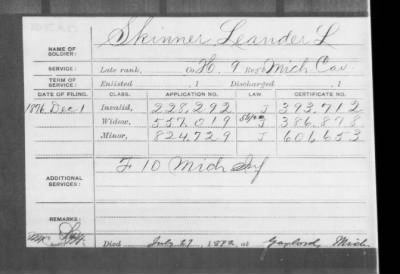 Skinner Leander L
NAME OF SOLDIER:
SERVICE: Late rank, Co. H, 9 Reg't Mich Cav
TERM OF SERVICE: Enlisted , 1 Discharged , 1
DATE OF FILING. CLASS. APPLICATION NO. LAW. CERTIFICATE NO.
1876 Dec 1 Invalid, 228,292 J 393,712
Widow, 557,019 J 386,878
Minor, 824,729 J 601,653
ADDITIONAL SERVICES: F 10 Mich Inf
REMARKS:
Died July 27, 1892, at Gaylord, Mich